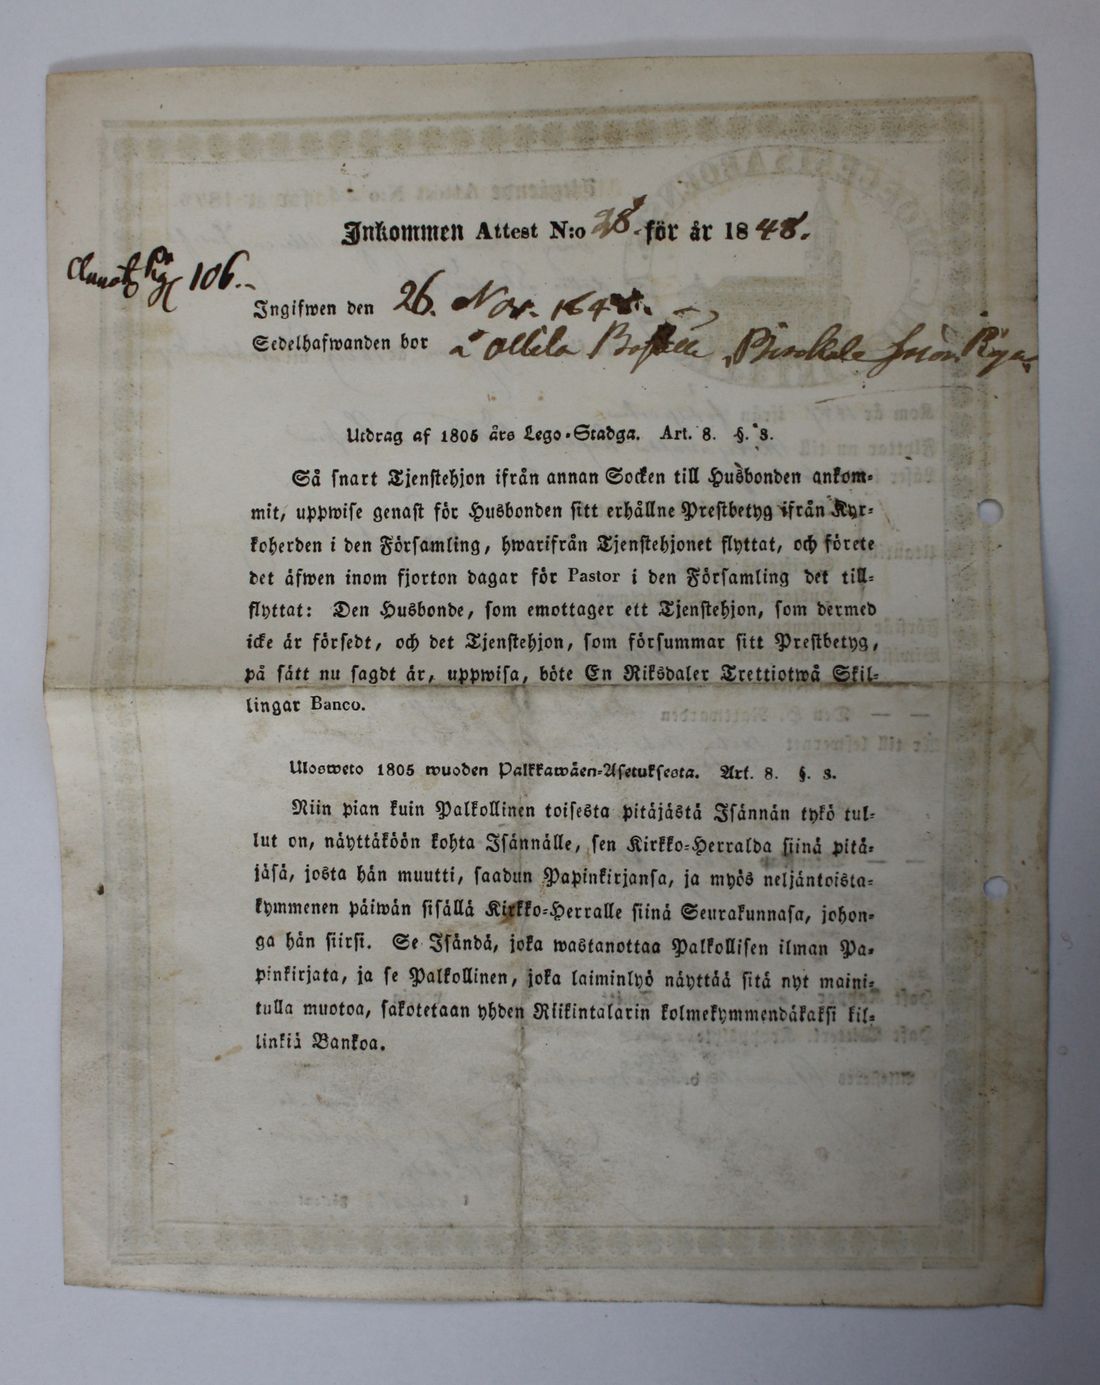 Inkommen Attest N:o 28. för år 1848.
106.
Ingifwen den 26. Nov. 1848.
Sedelhafwanden bor
Utdrag af 1805 års Lego-Stadga. Art. 8. §. 3.
Så snart Tjenstehjon ifrån annan Socken till Husbonden ankom-
mit, uppwise genast för Husbonden sitt erhållne Prestbetyg ifrån Kyr-
koherden i den Församling, hwarifrån Tjenstehjonet flyttat, och förete
det äfwen inom fjorton dagar för Pastor i den Församling det till-
flyttat: Den Husbonde, som emottager ett Tjenstehjon, som dermed
icke är försedt, och det Tjenstehjon, som försummar sitt Prestbetyg,
på sätt nu sagdt är, uppwisa, böte En Riksdaler Trettiotwå Skil-
lingar Banco.
Ulosweto 1805 wuoden Palkkawäen-Asetuksesta. Art. 8. §. 3.
Niin pian kuin Palkollinen toisesta pitäjästä Isännän tykö tul-
lut on, näyttäköön kohta Isännälle, sen Kirkko-Herralda siinä pitä-
jäsä, josta hän muutti, saadun Papinkirjansa, ja myös neljäntoista-
kymmenen päiwän sisällä Kirkko-Herralle siinä Seurakunnasa, johon-
ga hän siirsi. Se Isändä, joka wastanottaa Palkollisen ilman Pa-
pinkirjata, ja se Palkollinen, joka laiminlyö näyttää sitä nyt maini-
tulla muotoa, sakotetaan yhden Riikintalarin kolmekymmendäkaksi kil-
linkiä Bankoa.